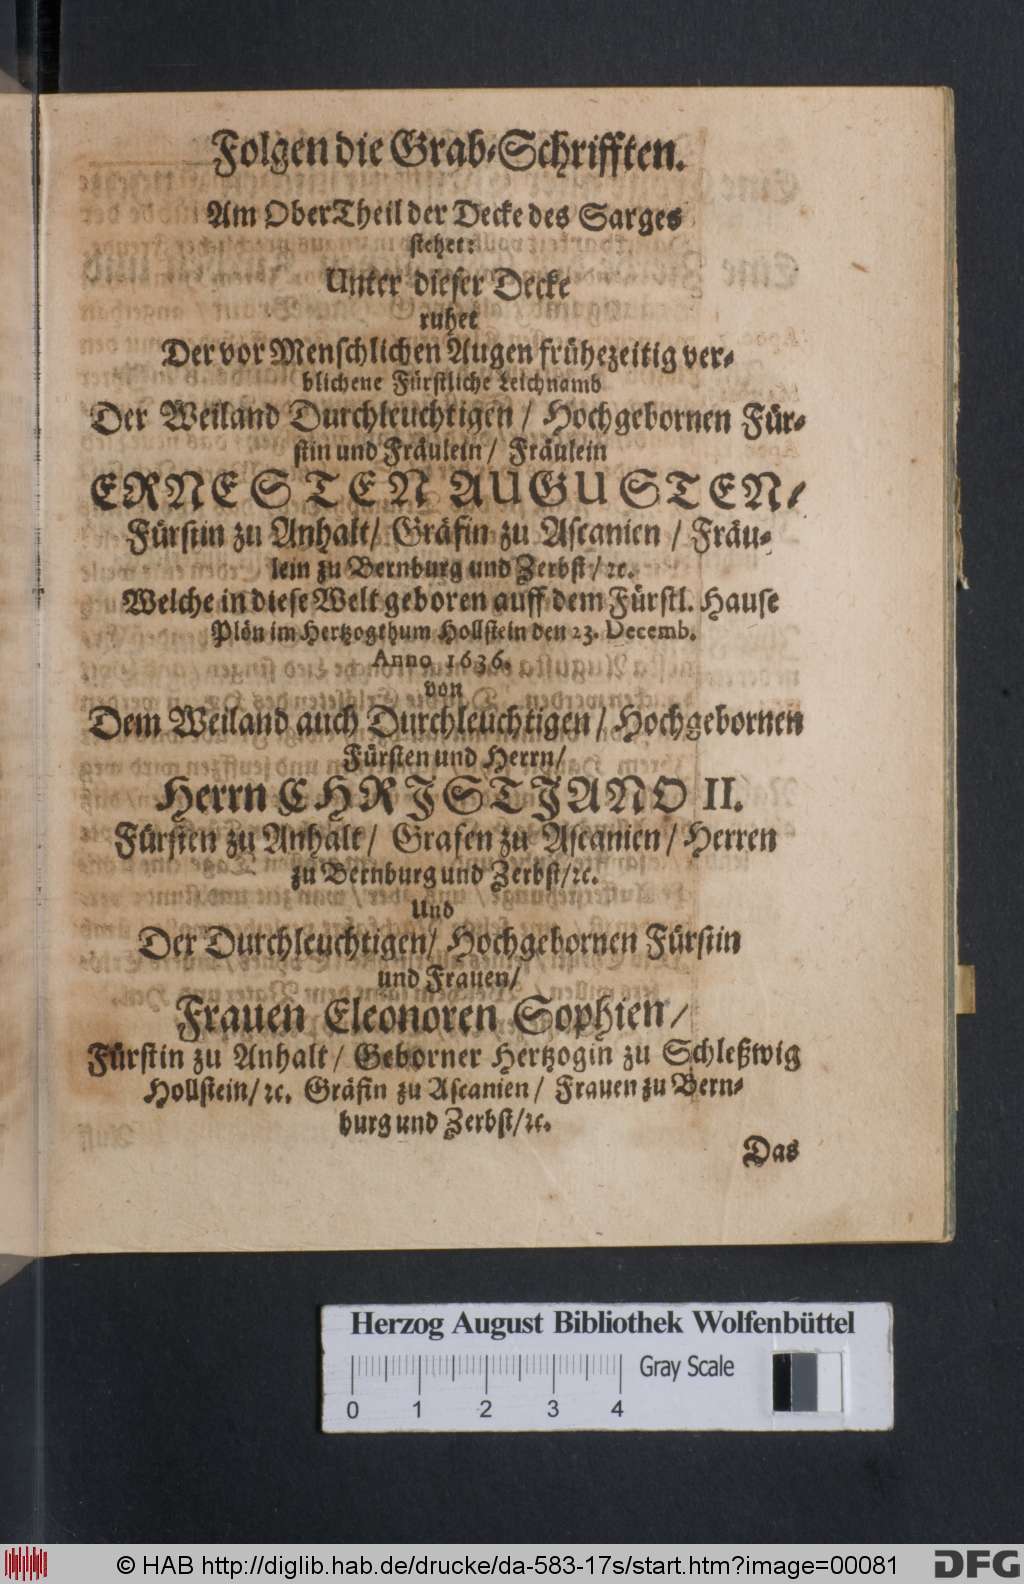 Folgen die Grab-Schrifften.
Am OberTheil der Decke des Sarges
stehet:
Unter dieser Decke
ruhet
Der vor Menschlichen Augen frühezeitig ver-
blichene Fürstliche Leichnamb
Der Weiland Durchleuchtigen / Hochgebornen Für-
stin und Fräulein / Fräulein
ERNESTEN AUGUSTEN /
Fürstin zu Anhalt / Gräfin zu Ascanien / Fräu-
lein zu Bernburg und Zerbst / ꝛc.
Welche in diese Welt geboren auff dem Fürstl. Hause
Plön im Hertzogthum Hollstein den 23. Decemb.
Anno 1636.
von
Dem Weiland auch Durchleuchtigen / Hochgebornen
Fürsten und Herrn /
Herrn CHRISTJANO II.
Fürsten zu Anhalt / Grafen zu Ascanien / Herren
zu Bernburg und Zerbst / ꝛc.
Und
Der Durchleuchtigen / Hochgebornen Fürstin
und Frauen /
Frauen Eleonoren Sophien /
Fürstin zu Anhalt / Geborner Hertzogin zu Schleßwig
Hollstein / ꝛc. Gräfin zu Ascanien / Frauen zu Bern-
burg und Zerbst / ꝛc.
Das
Herzog August Bibliothek Wolfenbüttel
Gray Scale
0 1 2 3 4
© HAB http://diglib.hab.de/drucke/da-583-17s/start.htm?image=00081
DFG